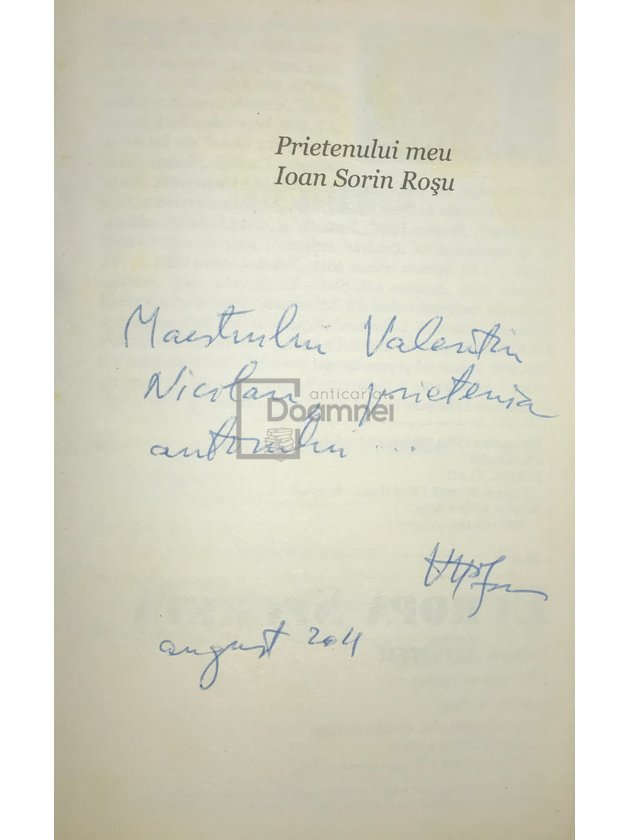 Prietenului meu
Ioan Sorin Roşu
Maestrului Valentin
Nicolau, prietenia
anticariat
Doamnei
autorului ...
august 2011